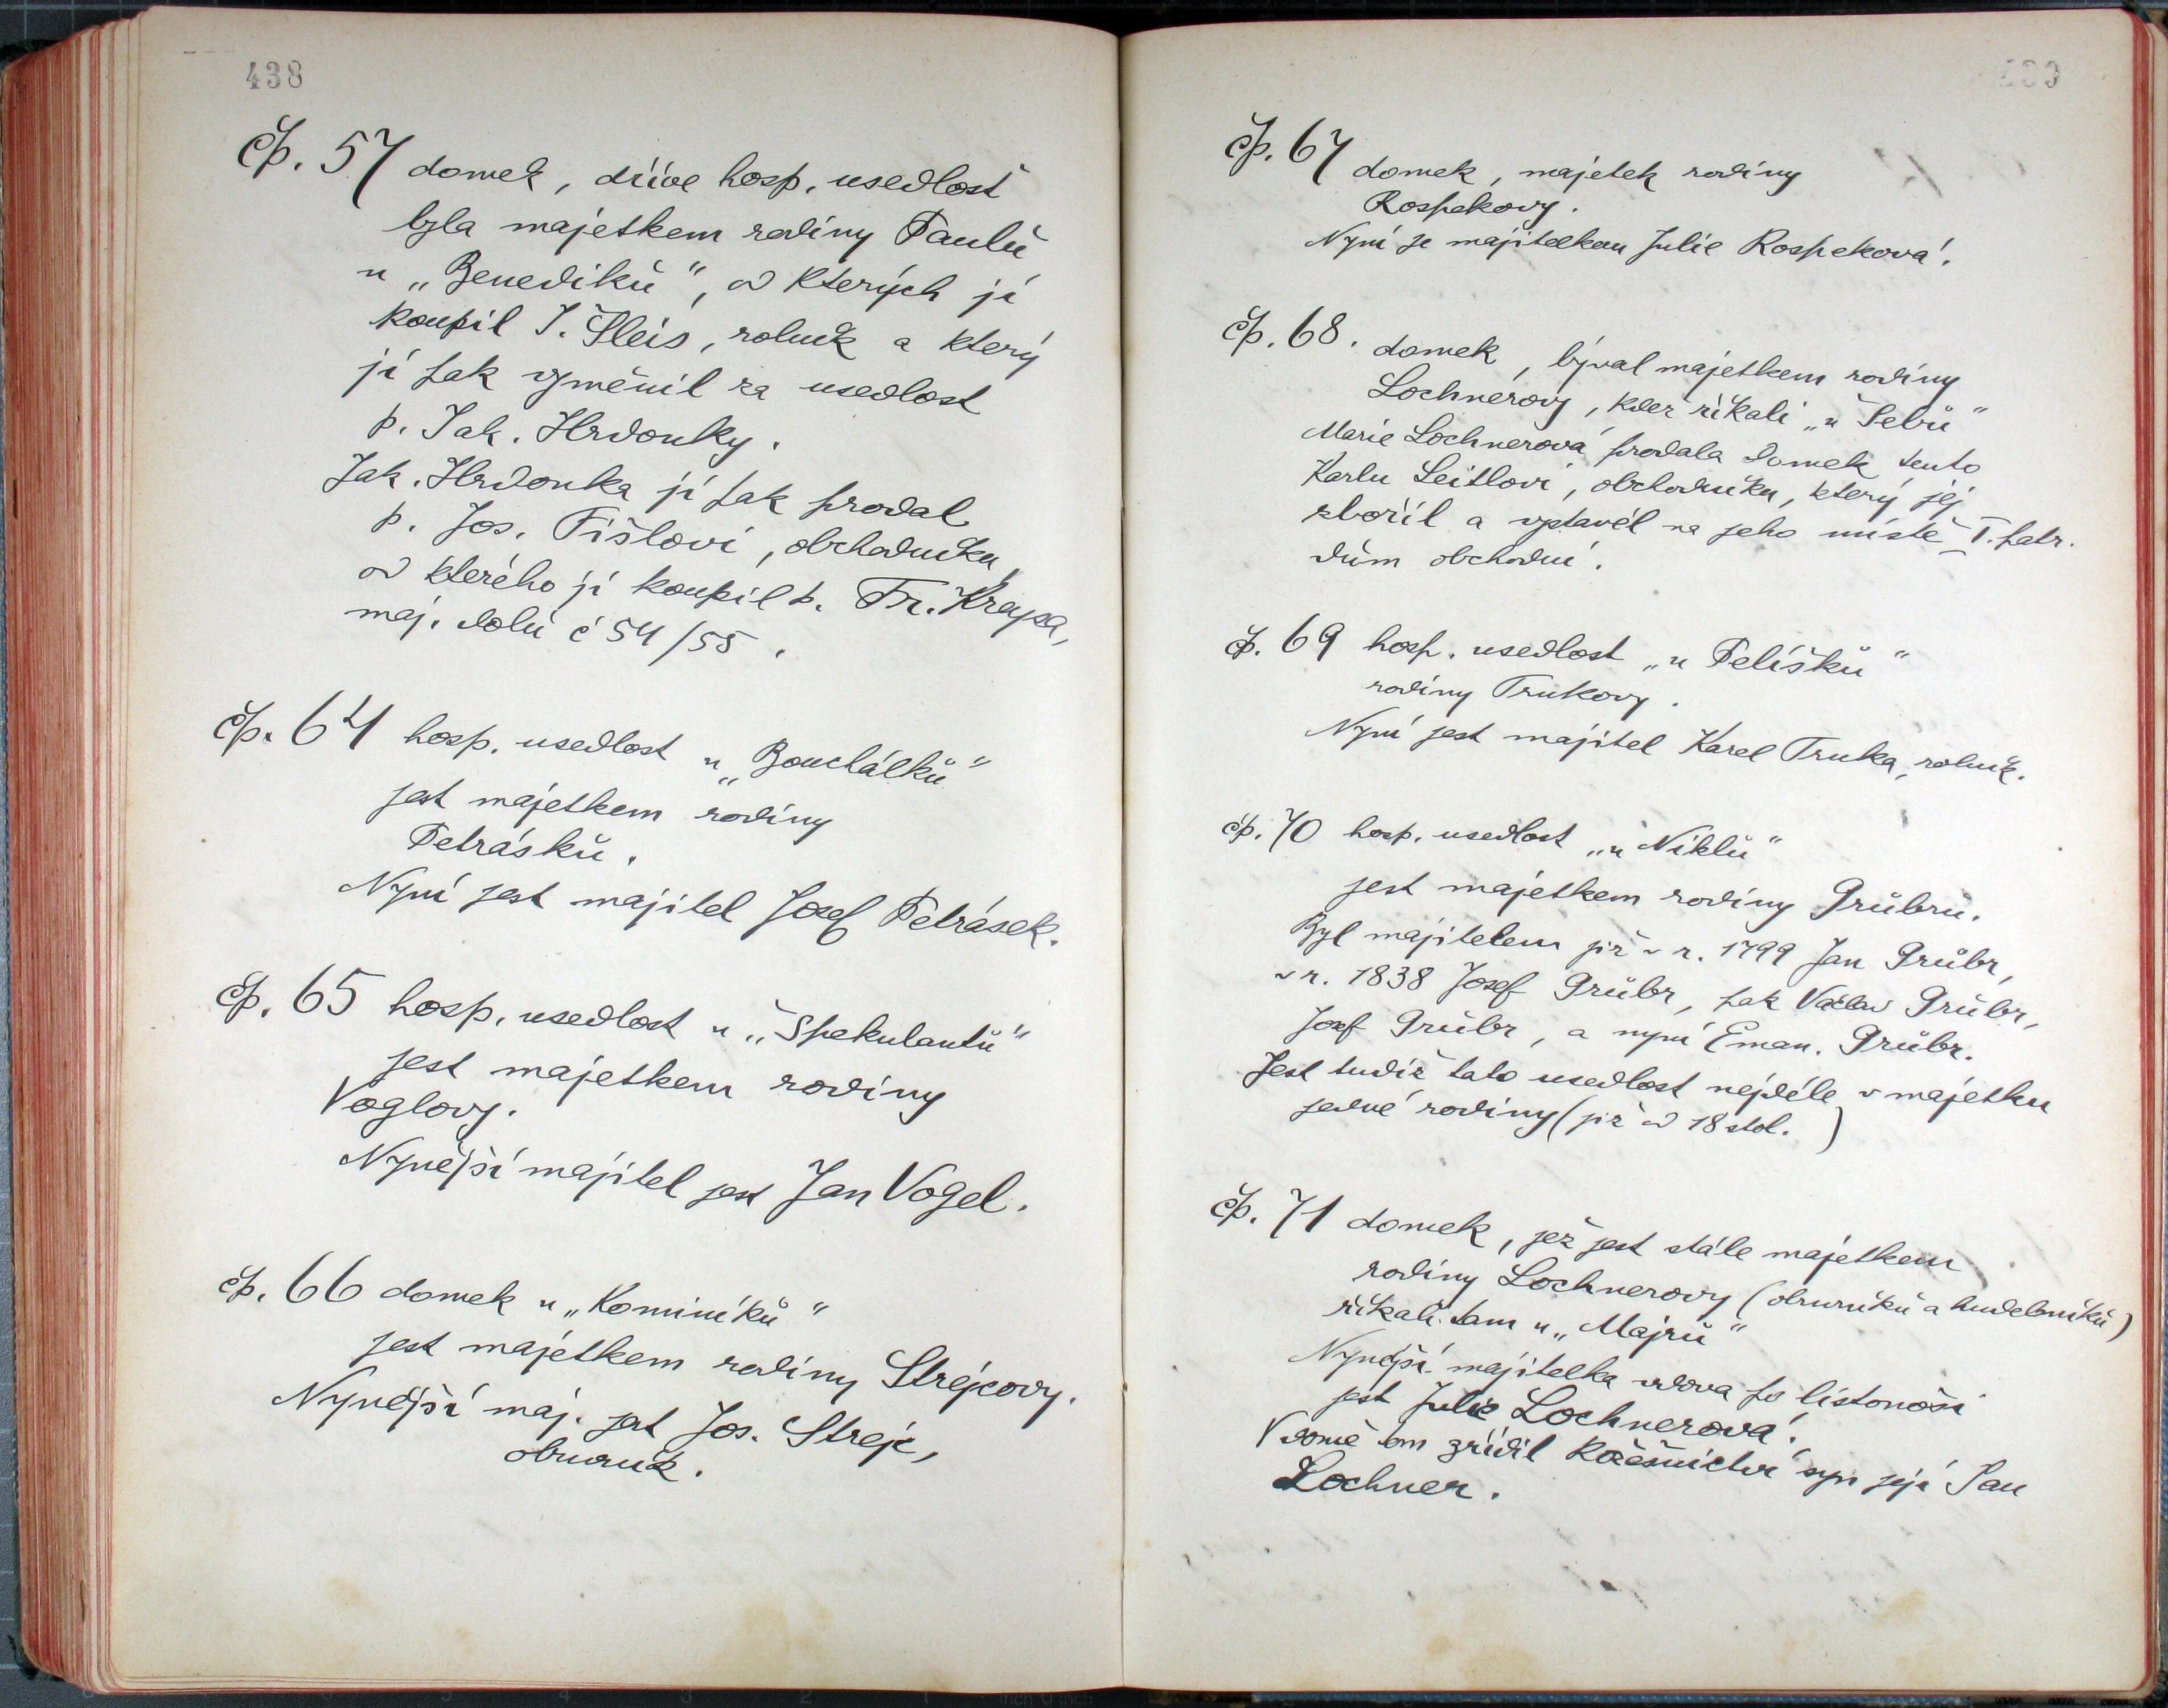 438
čp. 57 domek, dříve hosp. usedlost
byla majetkem rodiny Paulů
u „Benediků“, od kterých ji
koupil J. Šleis, rolník a který
ji pak vyměnil za usedlost
p. Jak. Hrdonky.
Jak. Hrdonka ji pak prodal
p. Jos. Fišlovi, obchodníku,
od kterého ji koupil p. Fr. Krapsa,
maj. dolů č 54/55.
čp. 64 hosp. usedlost u „Bouchálků“
jest majetkem rodiny
Petrásků.
Nyní jest majitel Josef Petrásek.
čp. 65 hosp. usedlost u „Spekulantů“
jest majetkem rodiny
Voglovy.
Nynější majitel jest Jan Vogel.
čp. 66 domek u „Kominíků“
jest majetkem rodiny Strejcovy.
Nynější maj. jest Jos. Strejc,
obuvník.
čp. 67 domek, majetek rodiny
Rospekovy.
Nyní je majitelkou Julie Rospeková.
čp. 68. domek, býval majetkem rodiny
Lochnerovy, kdež říkali „u Sebů“
Marie Lochnerová prodala domek tento
Karlu Leitlovi, obchodníku, který jej
zbořil a vystavěl na jeho místě I. patr.
dům obchodní.
čp. 69 hosp. usedlost „u Pelíšků“
rodiny Trukovy.
Nyní jest majitel Karel Truka, rolník.
čp. 70 hosp. usedlost „u Niklů“
jest majetkem rodiny Grübrů.
Byl majitelem již v r. 1799 Jan Grübr,
v r. 1838 Josef Grübr, pak Václav Grübr,
Josef Grübr, a nyní Eman. Grübr.
Jest tudíž tato usedlost nejdéle v majetku
jedné rodiny (již od 18 stol.)
čp. 71 domek, jež jest stále majetkem
rodiny Lochnerovy (obuvníků a hudebníků)
říkali tam u „Majrů“
Nynější majitelka vdova po listonoši
jest Julie Lochnerová.
V domě tom zřídil kožešnictví syn její Jan
Lochner.